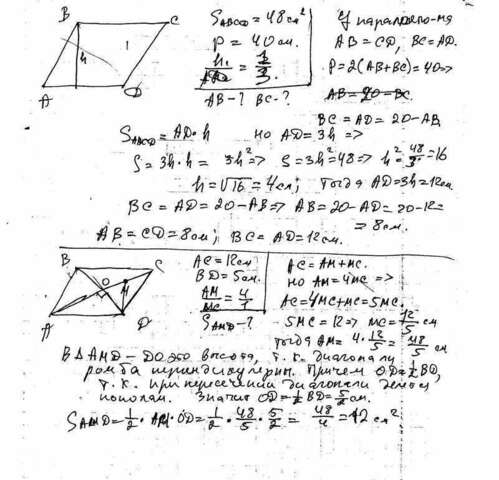 B C
h 1
A D
S_ABCD = 48см²
P = 40см.
h/AD = 1/3.
AB-? BC-?
У параллело-ма
AB = CD, BC = AD.
P = 2(AB+BC) = 40 =>
AB = 20 - BC.
BC = AD = 20 - AB
S_ABCD = AD · h но AD = 3h =>
S = 3h·h = 3h² => S = 3h² = 48 => h² = 48/3 = 16
h = √16 = 4см; тогда AD = 3h = 12см
BC = AD = 20 - AB => AB = 20 - AD = 20 - 12 =
= 8см.
AB = CD = 8см; BC = AD = 12см.
B C
O M
A D
AC = 12см
BD = 5см.
AM/MC = 4/1
S_AMD - ?
AC = AM + MC.
но AM = 4MC =>
AC = 4MC + MC = 5MC.
5MC = 12 => MC = 12/5 см
тогда AM = 4·12/5 = 48/5 см
В ΔAMD - DO это высота, т.к. диагонали
ромба перпендикулярны. Причем OD = 1/2 BD,
т.к. при пересечении диагонали делятся
пополам. Значит OD = 1/2 BD = 5/2 см.
S_AMD = 1/2 · AM · OD = 1/2 · 48/5 · 5/2 = 48/4 = 12 см².